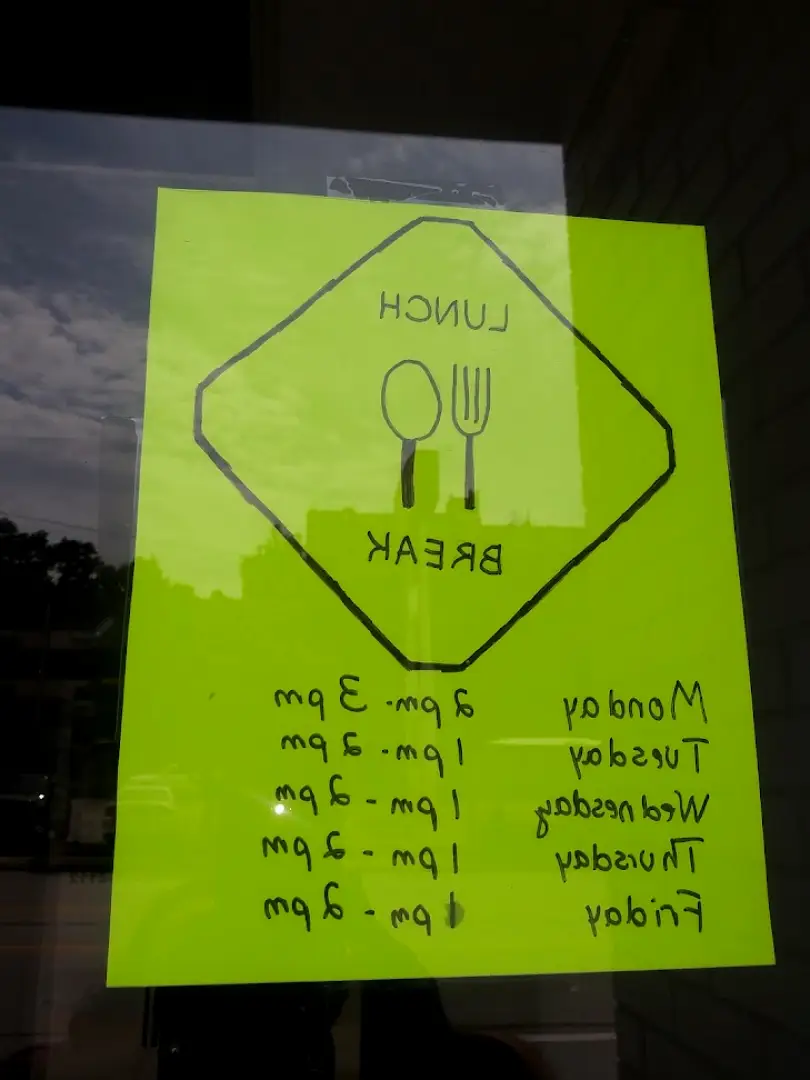 LUNCH
BREAK
Monday 2 pm - 3 pm
Tuesday 1 pm - 2 pm
Wednesday 1 pm - 2 pm
Thursday 1 pm - 2 pm
Friday 1 pm - 2 pm